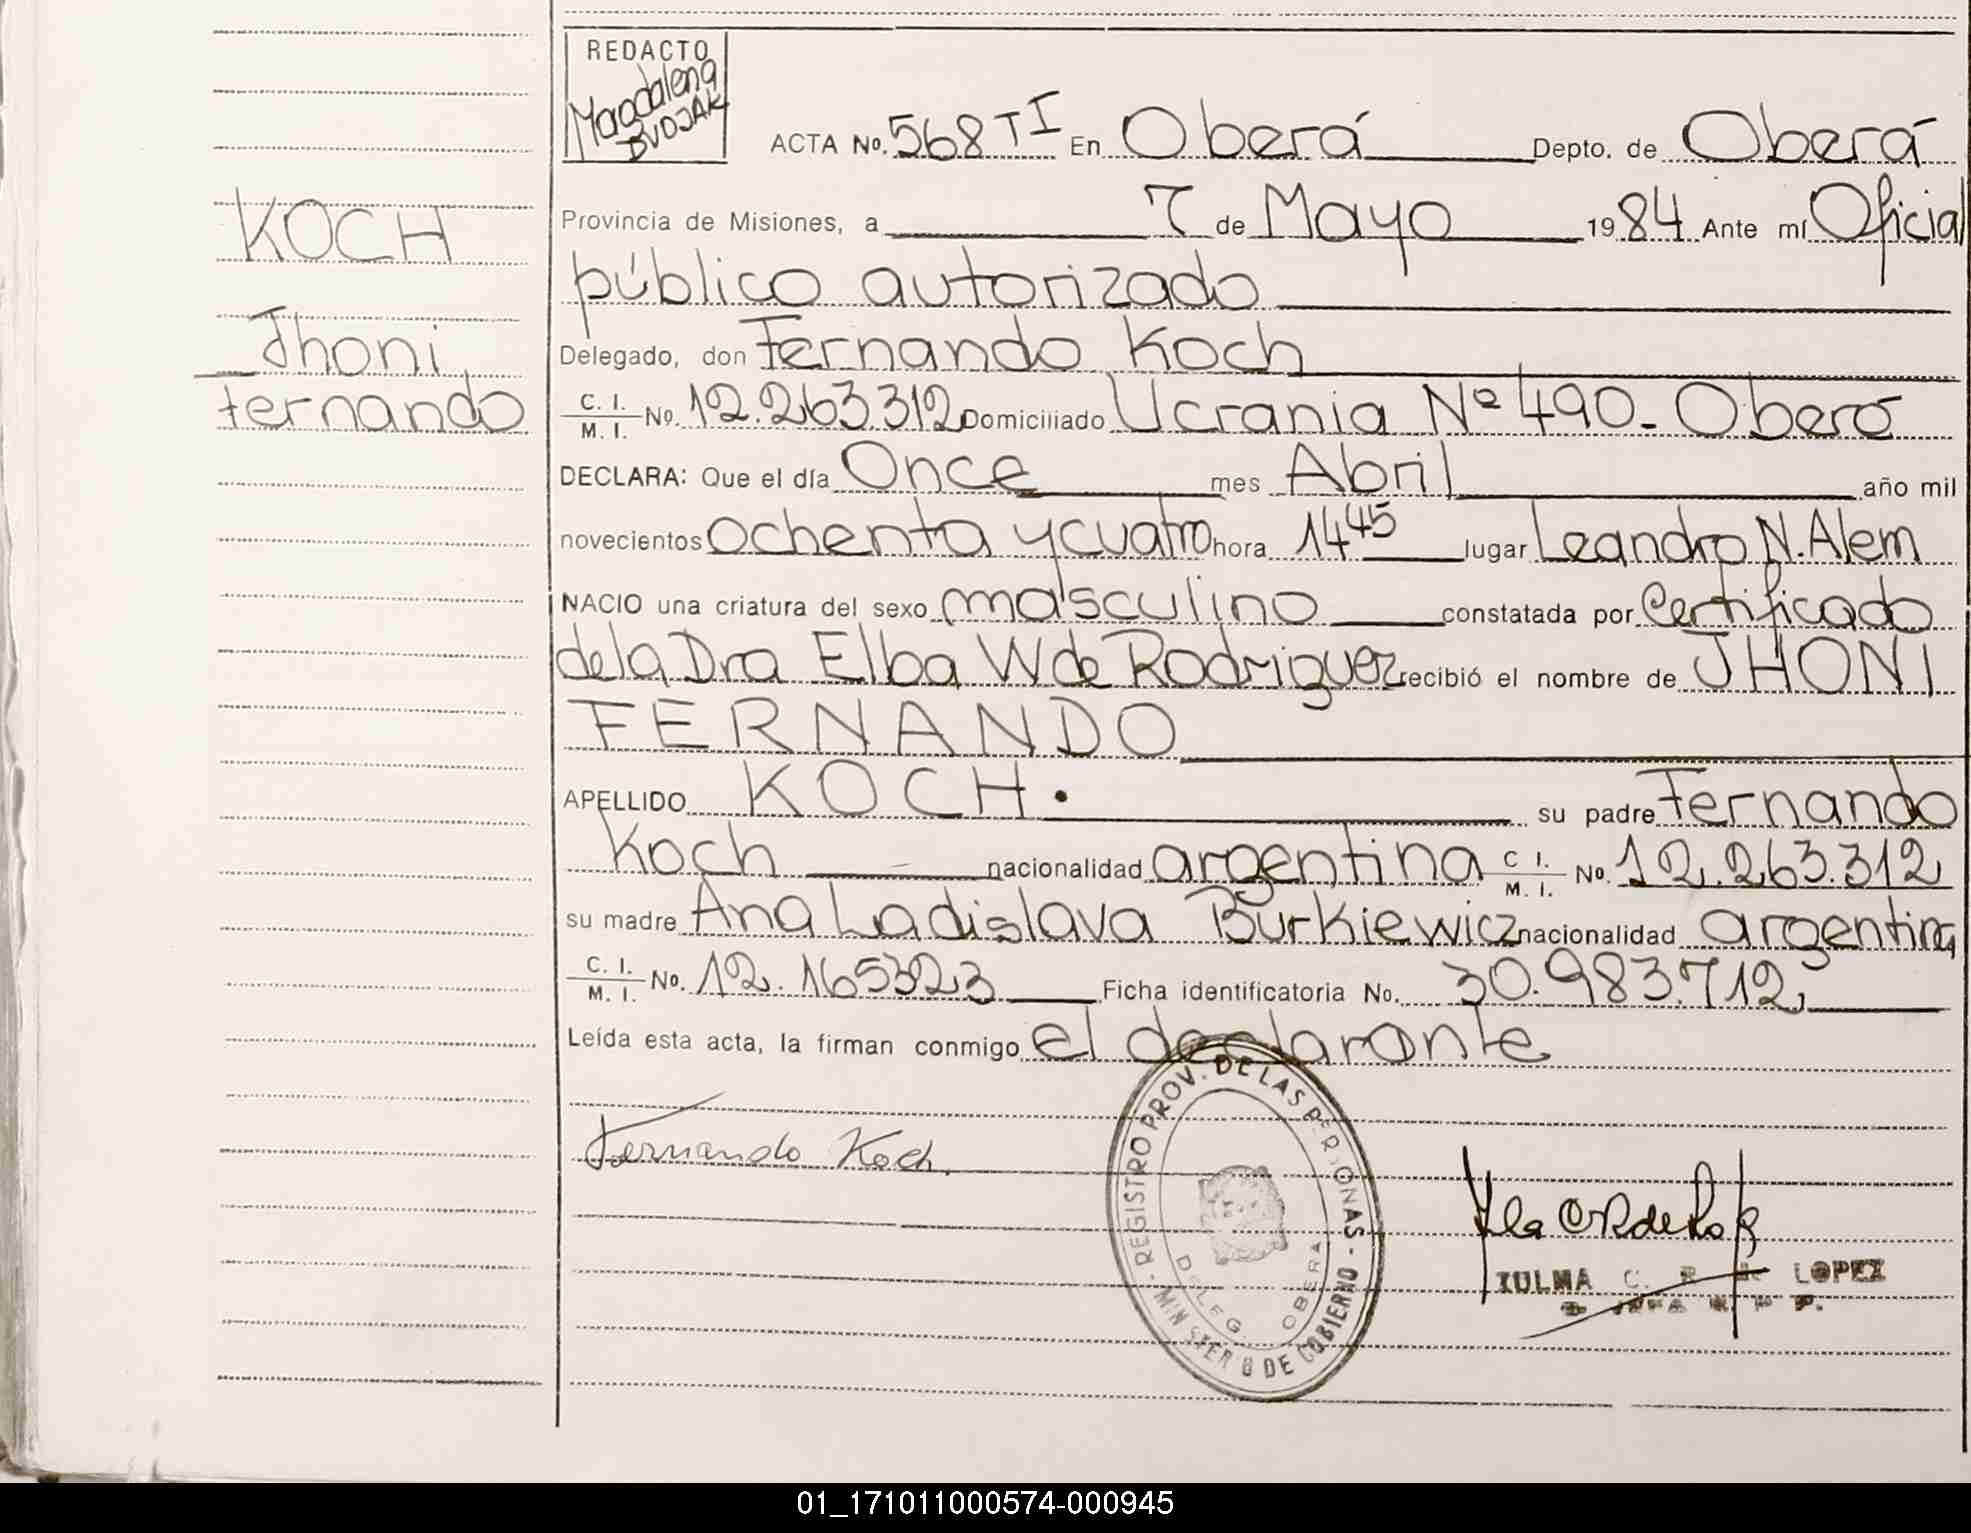 REDACTO
Magdalena
BUDJAK
ACTA No. 568 T I En Oberá Depto. de Oberá
KOCH
Provincia de Misiones, a 7 de Mayo 1984 Ante mí Oficial
público autorizado
Jhoni
Delegado, don Fernando Koch
Fernando
C. I. / M. I. No. 12.263.312 Domiciliado Ucrania Nº 490 - Oberá
DECLARA: Que el día Once mes Abril año mil
novecientos ochenta y cuatro hora 14 45 lugar Leandro N. Alem
NACIO una criatura del sexo masculino constatada por Certificado
de la Dra Elba W de Rodriguez recibió el nombre de JHONI
FERNANDO
APELLIDO KOCH. su padre Fernando
Koch nacionalidad argentina C I. / M. I. No. 12.263.312
su madre Ana Ladislava Burkiewicz nacionalidad argentina
C. I. / M. I. No. 12.165323 Ficha identificatoria No. 30.983.712
Leída esta acta, la firman conmigo el declarante
REGISTRO PROV. DE LAS PERSONAS - MINISTERIO DE GOBIERNO
DELEG OBERA
Fernando Koch.
ZULMA C. R DE LOPEZ
01_171011000574-000945